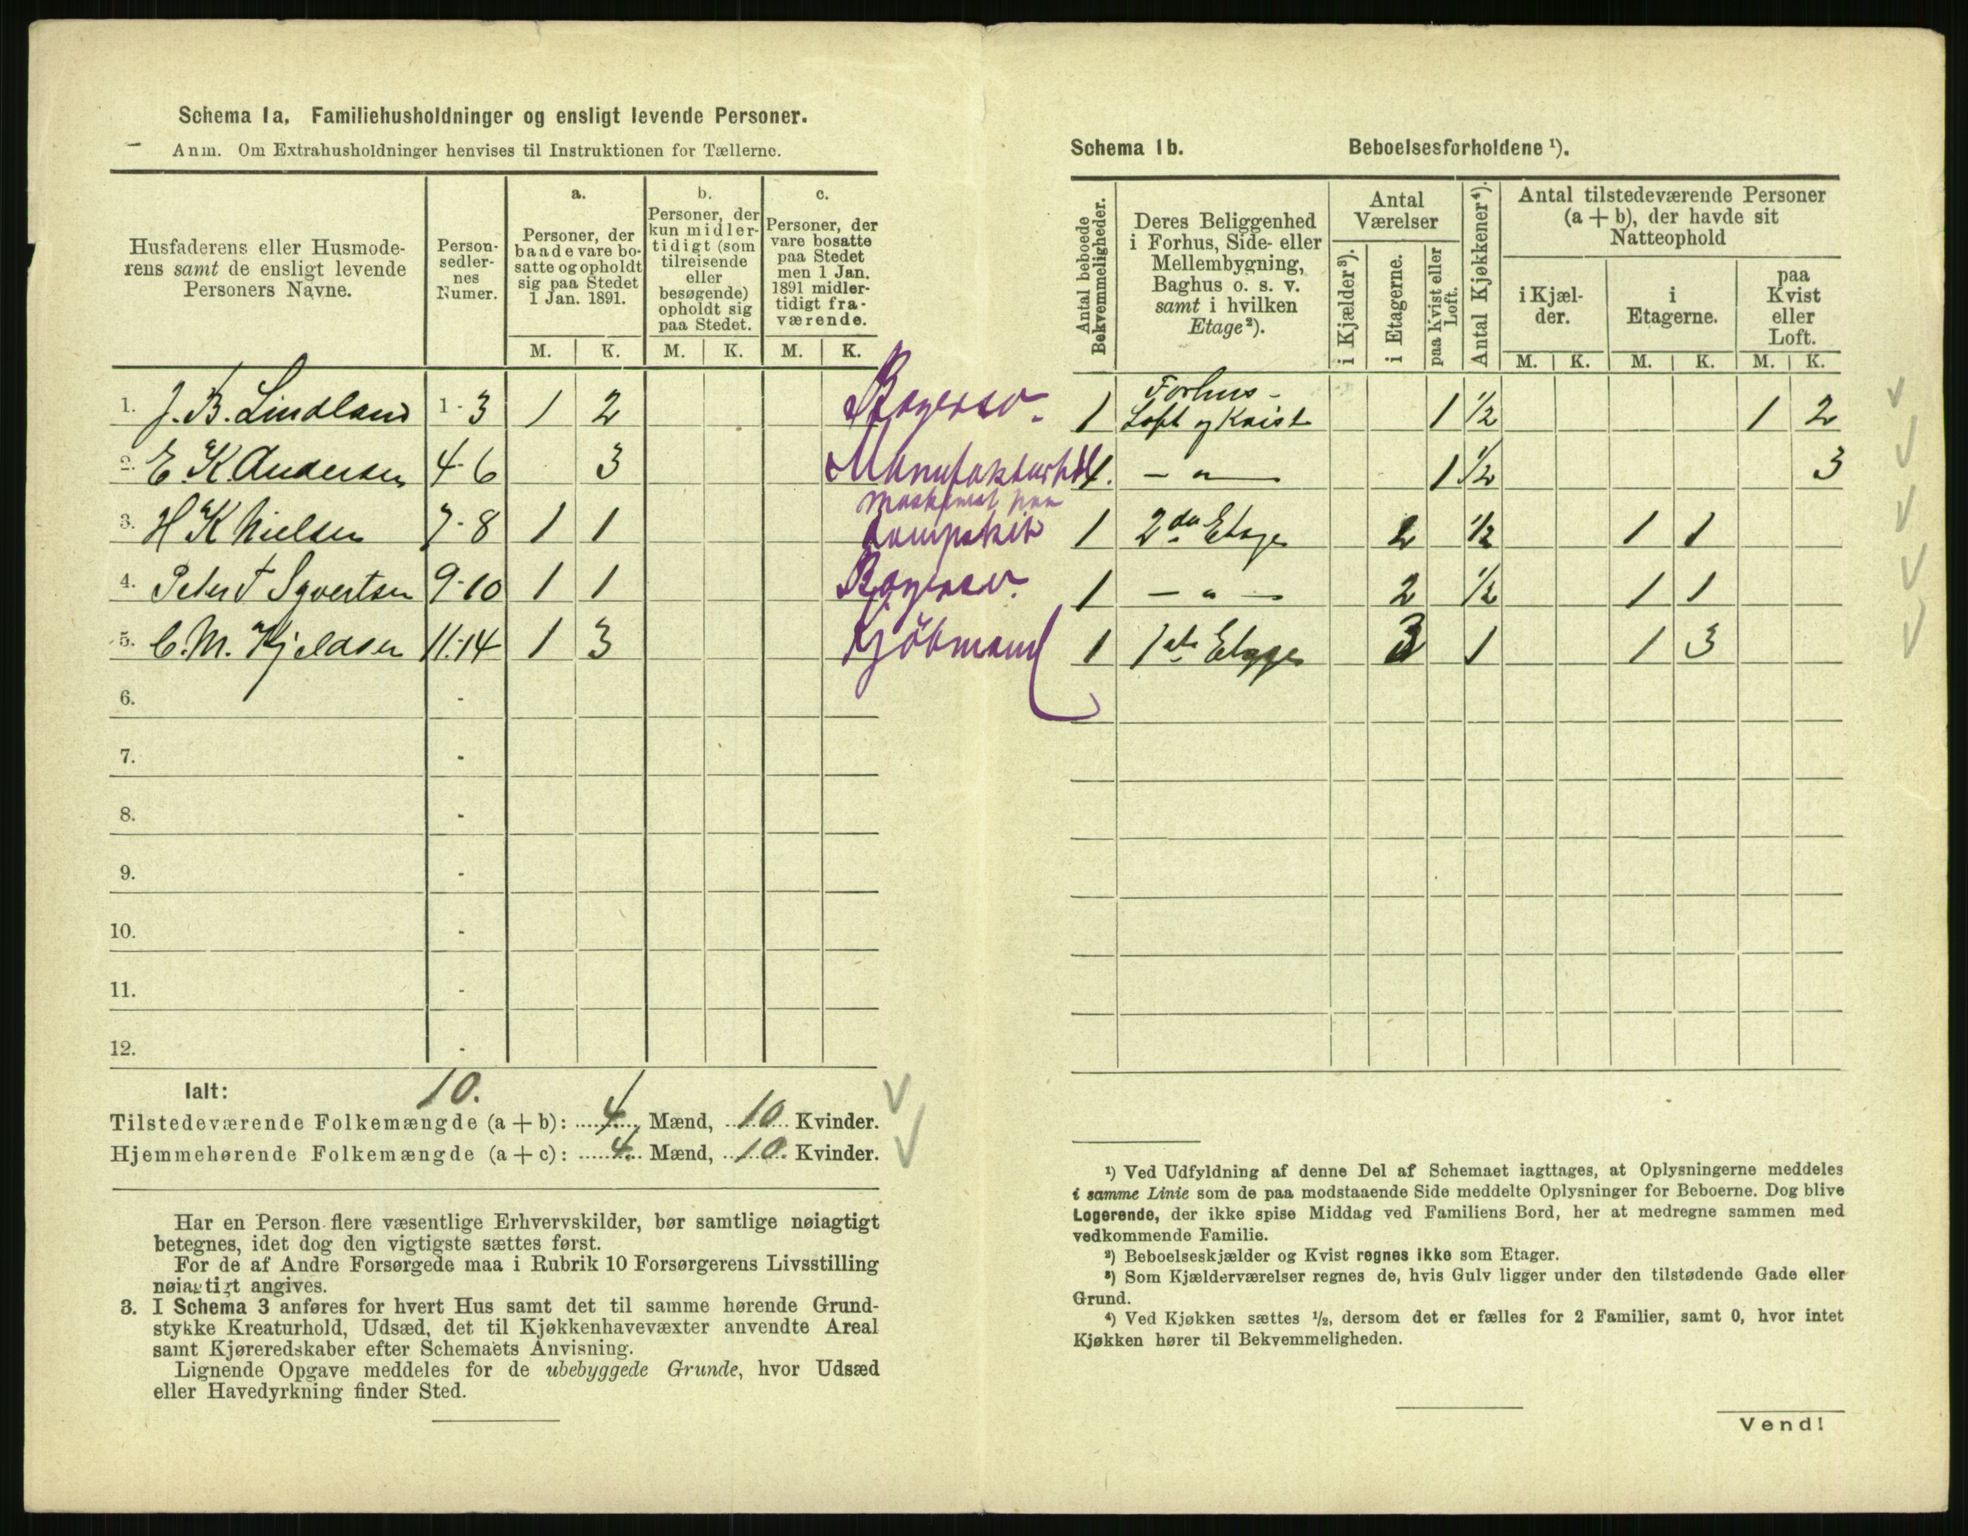 Schema 1a. Familiehusholdninger og ensligt levende Personer.
Anm. Om Extrahusholdninger henvises til Instruktionen for Tællerne.
Husfaderens eller Husmode-
rens samt de ensligt levende
Personers Navne.
Person-
sedler-
nes
Numer.
a.
Personer, der
baade vare bo-
satte og opholdt
sig paa Stedet
1 Jan. 1891.
b.
Personer, der
kun midler-
tidigt (som
tilreisende
eller
besøgende)
opholdt sig
paa Stedet.
c.
Personer, der
vare bosatte
paa Stedet
men 1 Jan.
1891 midler-
tidigt fra-
værende.
M. K. M. K. M. K.
1. J. B. Lindland 1-3 1 2
2. E K Andersen 4-6 3 Manufakturh
3. H K Nielsen 7-8 1 1
4. Peter T Syvertsen 9-10 1 1
5. C. M. Kjeldsen 11-14 1 3 Kjöbmand
6. -
7. -
8. -
9. -
10. -
11. -
12. -
Ialt: 10.
Tilstedeværende Folkemængde (a + b): 4. Mænd, 10 Kvinder.
Hjemmehørende Folkemængde (a + c): 4. Mænd, 10. Kvinder.
Har en Person flere væsentlige Erhvervskilder, bør samtlige nøiagtigt
betegnes, idet dog den vigtigste sættes først.
For de af Andre Forsørgede maa i Rubrik 10 Forsørgerens Livsstilling
nøiagtigt angives.
3. I Schema 3 anføres for hvert Hus samt det til samme hørende Grund-
stykke Kreaturhold, Udsæd, det til Kjøkkenhavevæxter anvendte Areal
samt Kjøreredskaber efter Schemaets Anvisning.
Lignende Opgave meddeles for de ubebyggede Grunde, hvor Udsæd
eller Havedyrkning finder Sted.
Schema 1b. Beboelsesforholdene ¹).
Antal beboede
Bekvemmeligheder.
Deres Beliggenhed
i Forhus, Side- eller
Mellembygning,
Baghus o. s. v.
samt i hvilken
Etage²).
Antal
Værelser
i Kjælder³).
i Etagerne.
paa Kvist eller
Loft.
Antal Kjøkkener⁴).
Antal tilstedeværende Personer
(a + b), der havde sit
Natteophold
i Kjæl-
der.
i
Etagerne.
paa
Kvist
eller
Loft.
M. K. M. K. M. K.
1 Forhus -
Loft og Kvist 1 ½ 1 2
1. — " — 1 ½ 3
1 2den Etage 2 ½ 1 1
1 — " — 2 ½ 1 1
1 1ste Etage 3 1 1 3
¹) Ved Udfyldning af denne Del af Schemaet iagttages, at Oplysningerne meddeles
i samme Linie som de paa modstaaende Side meddelte Oplysninger for Beboerne. Dog blive
Logerende, der ikke spise Middag ved Familiens Bord, her at medregne sammen med
vedkommende Familie.
²) Beboelseskjælder og Kvist regnes ikke som Etager.
³) Som Kjælderværelser regnes de, hvis Gulv ligger under den tilstødende Gade eller
Grund.
⁴) Ved Kjøkken sættes ½, dersom det er fælles for 2 Familier, samt 0, hvor intet
Kjøkken hører til Bekvemmeligheden.
Vend!